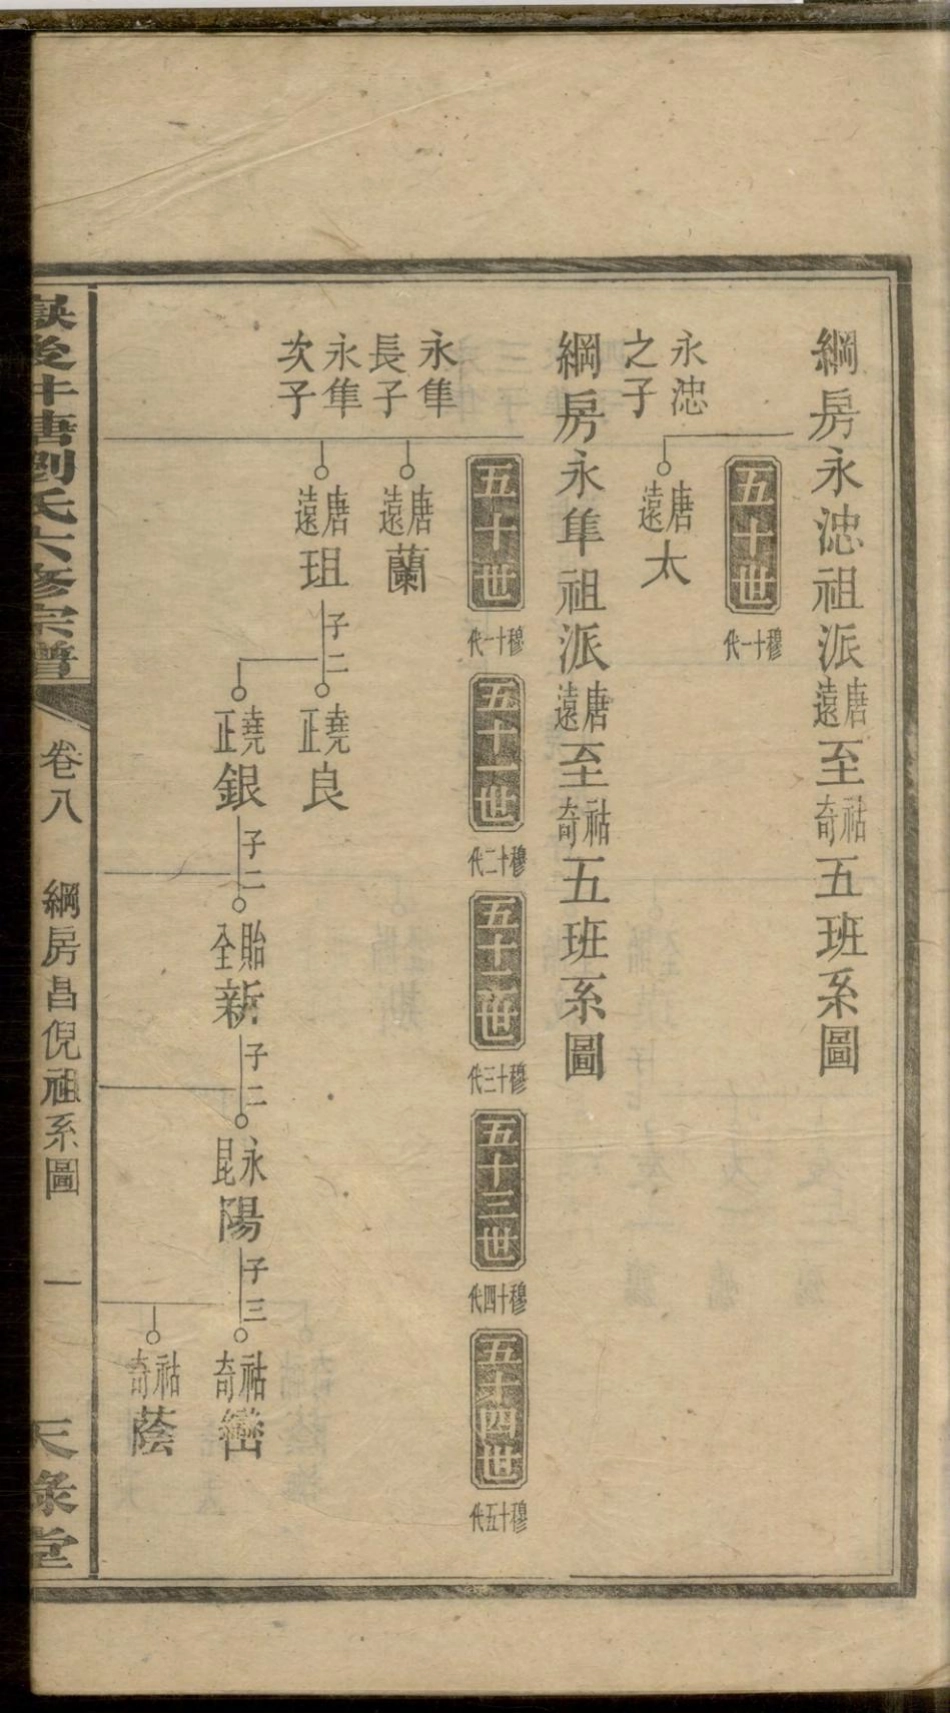 綱房永浤祖派唐遠至祜奇五班系圖
五十世
穆十一代
永浤之子
唐遠太
綱房永隼祖派唐遠至祜奇五班系圖
五十世
穆十一代
五十一世
穆十二代
五十二世
穆十三代
五十三世
穆十四代
五十四世
穆十五代
永隼長子
唐遠蘭
永隼次子
唐遠珇
子二
堯正良
堯正銀
子二
貽全新
子二
永昆陽
子三
祜奇巒
祜奇蔭
後牛塘劉氏六修宗譜
卷八
綱房昌倪祖系圖
一
天祿堂